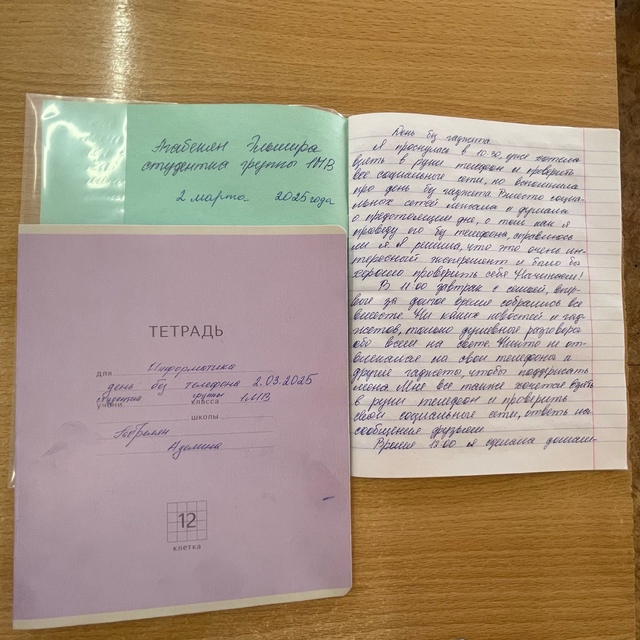 Агабекян Эльмира
студентка группы 1МВ
2 марта 2025 года
ТЕТРАДЬ
для Информатика
день без телефона 2.03.2025
студентка группы 1МВ
учени класса
школы
12
клетка
День без гаджета.
Я проснулась в 10:30, уже хотела
взять в руки телефон и проверить
все социальные сети, но вспомнила
про день без гаджета. Вместо социа-
льных сетей лежала и думала
о предстоящем дне, о том как я
проведу его без телефона, справлюсь
ли я. Я решила, что это очень ин-
тересный эксперимент и было бы
хорошо проверить себя. Начинаем!
В 11:00 завтрак с семьей, впер-
вые за долгое время собрались все
вместе. Ни каких новостей и гад-
жетов, только душевные разговоры
обо всем на свете. Никто не от-
влекался на свои телефоны и
другие гаджеты, чтобы поддержать
меня. Мне все также хочется взять
в руки телефон и проверить
свои социальные сети, ответь на
сообщения друзьям
Время 13:00 я сделала домаш-